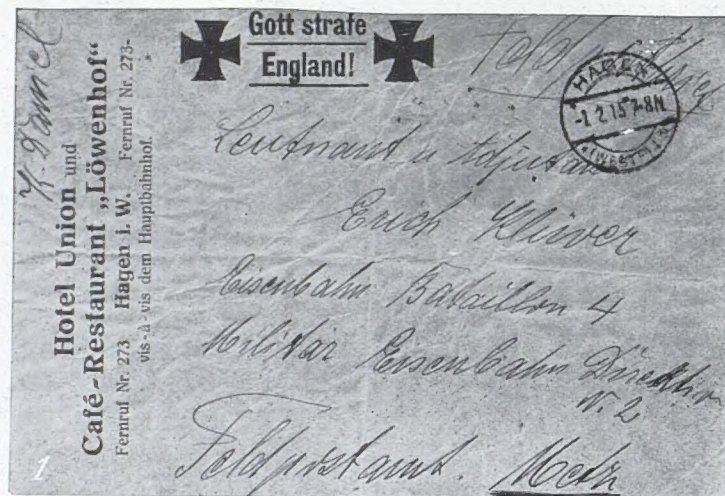 Gott strafe
England!
Feldpost
HAGEN
-1.2.15 7-8N
(WESTF.)
Hotel Union und
Café-Restaurant „Löwenhof“
Fernruf Nr. 273 Hagen i. W. Fernruf Nr. 273
vis-à-vis dem Hauptbahnhof.
Leutnant u Adjutant
Erich Klüver
Eisenbahn Bataillon 4
Militär Eisenbahn Direktion
N. 2
Feldpostamt. Metz
1